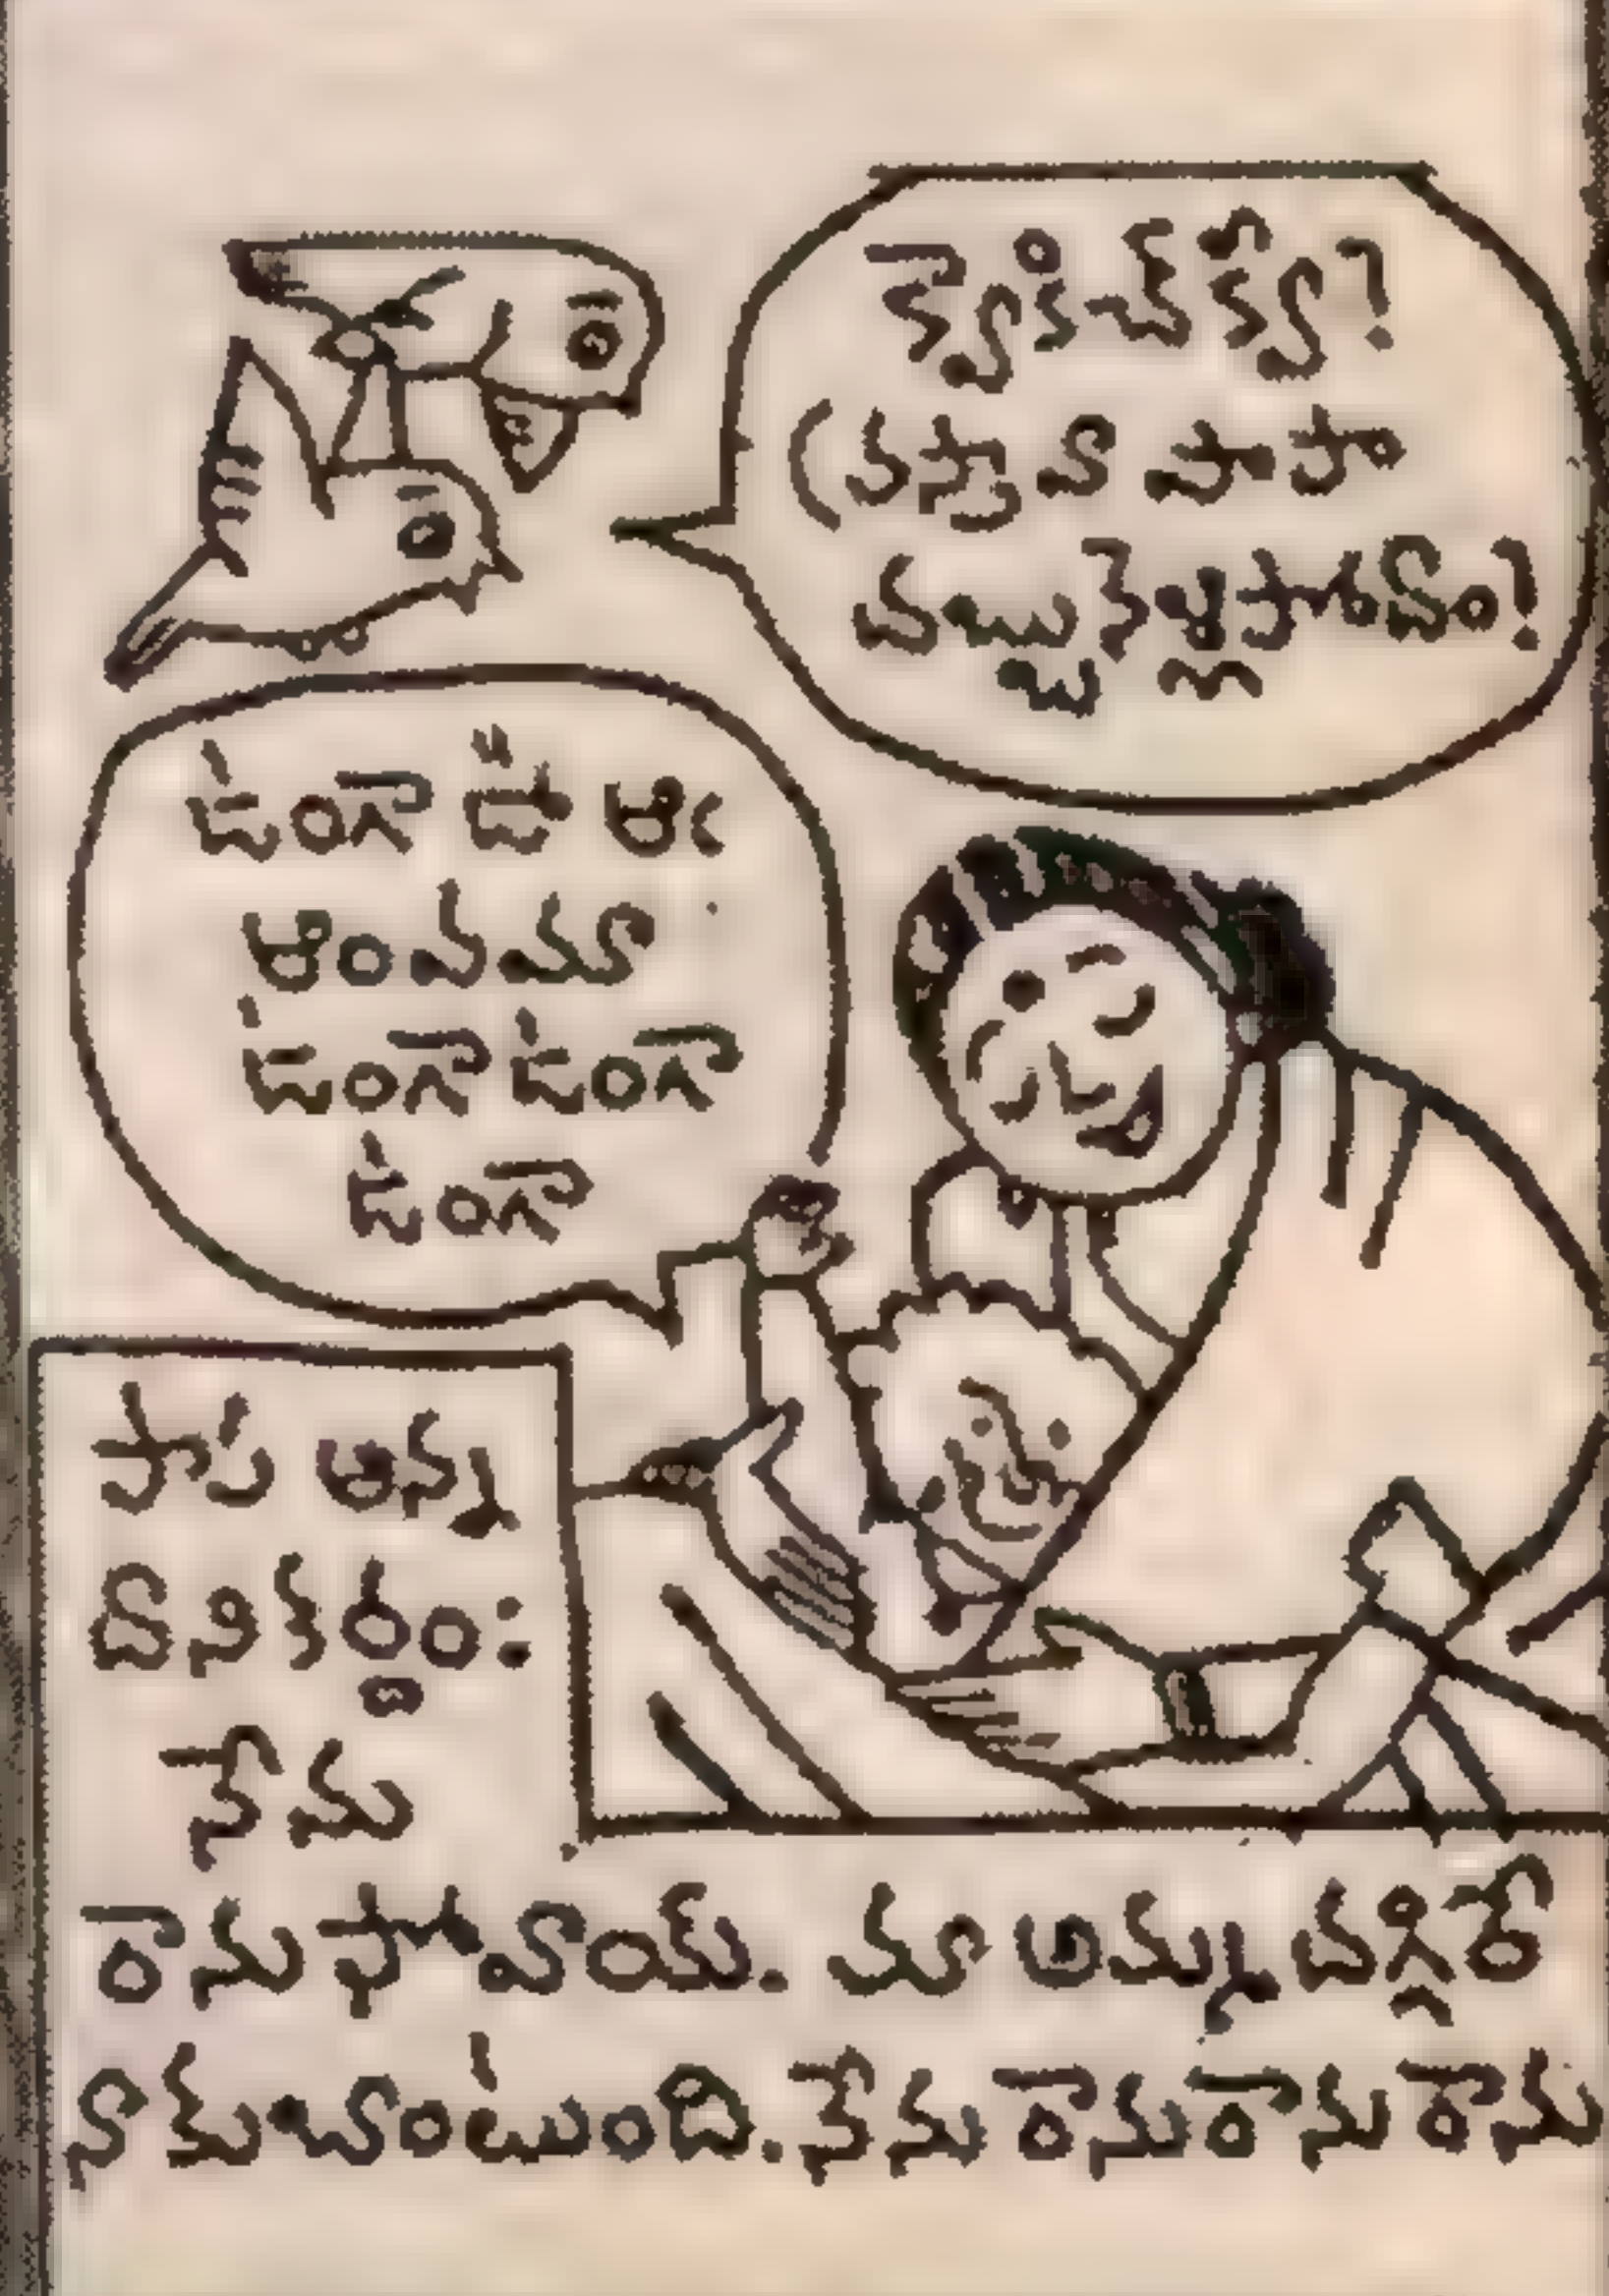 (వస్తావ పాపా
మబ్బుకెళ్లిపోదాం!
డింగా డీ ఆఁ
ఆంవమా
డింగా డింగా
డింగా
పాప అన్న
దానికర్థం:
నేను
రాను పోవోయ్. మా అమ్మ దగ్గరే
నాకు బావుంటుంది. నేను రాను రాను రాను